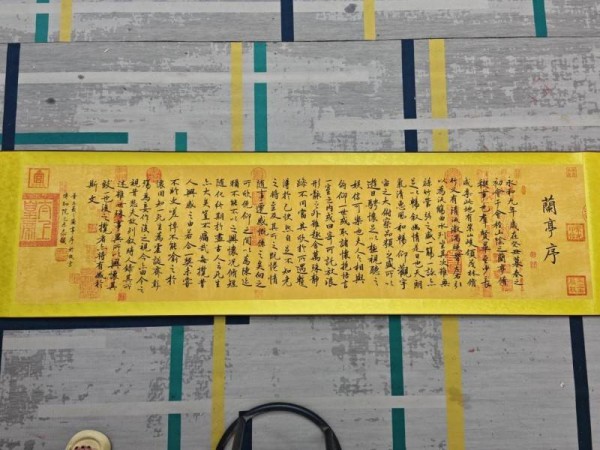 蘭亭序
永和九年歲在癸丑暮春之
初會于會稽山陰之蘭亭脩
禊事也羣賢畢至少長
咸集此地有崇山峻領茂林脩
竹又有清流激湍映帶左右引
以為流觴曲水列坐其次雖無
絲竹管弦之盛一觴一詠亦
足以暢敘幽情是日也天朗
氣清惠風和暢仰觀宇
宙之大俯察品類之盛所以
遊目騁懷足以極視聽之
娛信可樂也夫人之相與
俯仰一世或取諸懷抱悟言
一室之內或因寄所託放浪
形骸之外雖趣舍萬殊靜
躁不同當其欣於所遇蹔
得於己快然自足不知老
之將至及其所之既惓情
隨事遷感慨係之矣向之
所欣俛仰之間以為陳迹
猶不能不以之興懷況脩短
隨化終期於盡古人云死生
亦大矣豈不痛哉每攬昔
人興感之由若合一契未嘗
不臨文嗟悼不能喻之於
懷固知一死生為虛誕齊彭
殤為妄作後之視今亦由今之
視昔悲夫故列敘時人錄其所
述雖世殊事異所以興懷其
致一也後之攬者亦將有感於
斯文